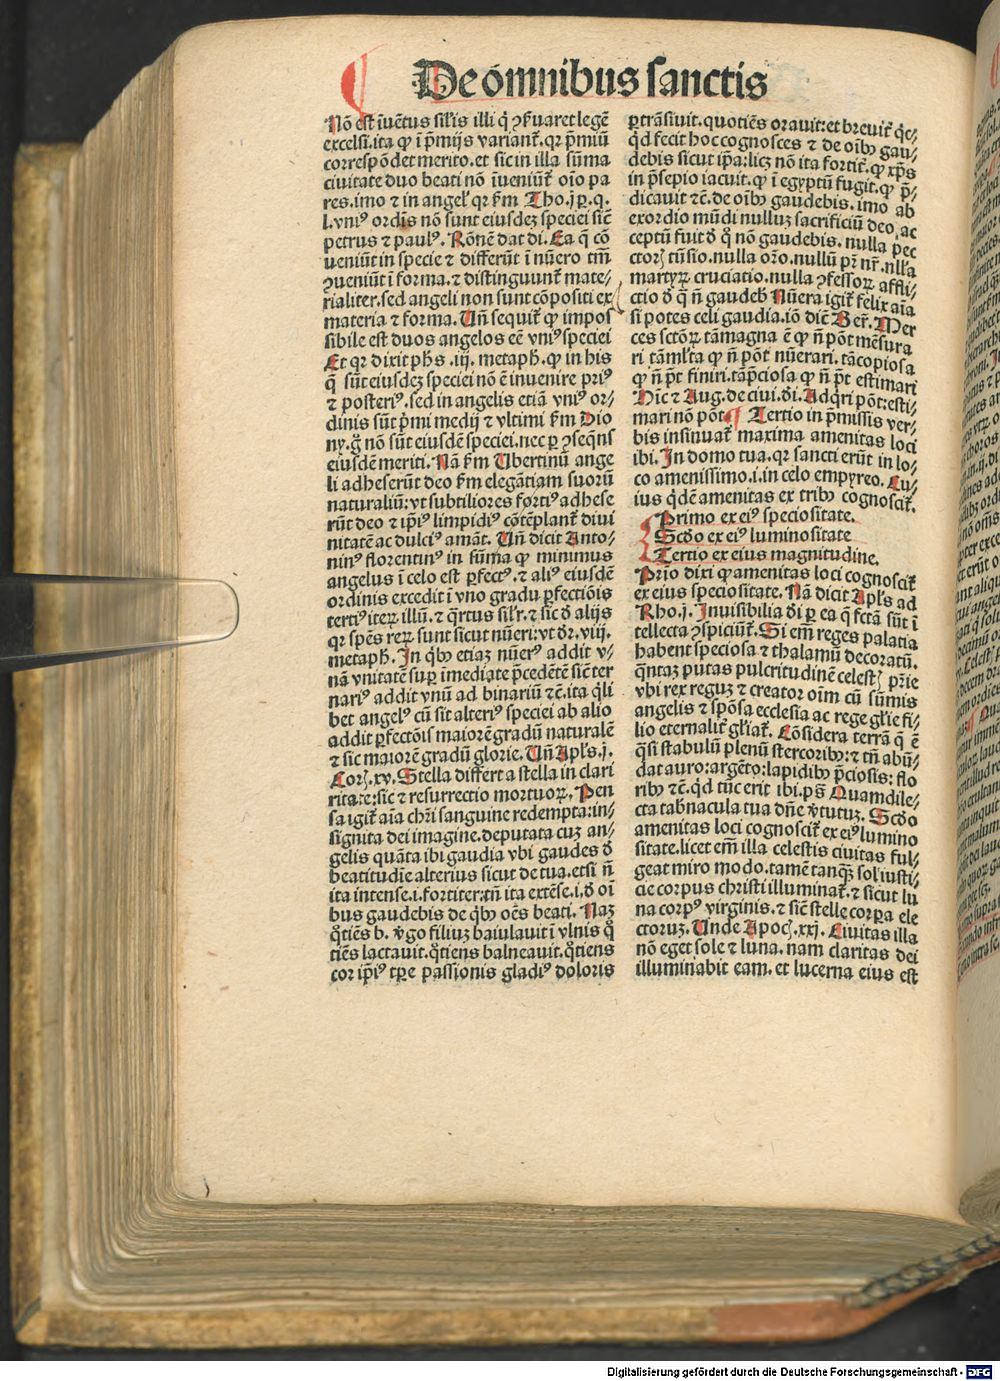 De omnibus sanctis
Nō est īuētus sil'is illi q̇ ꝯẜuaret legē
excelsi. ita ꝙ ī p̄mijs variant̄. qꝛ p̄miū
correspōdet merito. et sic in illa sūma
ciuitate duo beati nō īueniūt̄ oīo pa
res. imo ⁊ in angel' qꝛ ẜm Tho. j. p. q.
l. vniꝰ ordīs nō sunt eiusdeꝫ speciei sic̄
petrus ⁊ paulꝰ. Rōnē dat di. Ea q̄ cō
ueniūt in specie ⁊ differūt ī nūero tm̄
ꝯueniūt ī forma. ⁊ distinguunt̄ mate/
rialiter. sed angeli non sunt cōpositi ex
materia ⁊ forma. Uñ sequit̄ ꝙ impos
sibile est duos angelos eē vniꝰ speciei
Et qꝛ dixit ph̄s .iij. metaph̄. ꝙ in his
q̄ sūt eiusdeꝫ speciei nō ē inuenire priꝰ
⁊ posteriꝰ. sed in angelis etiā vniꝰ or/
dinis sūt p̄mi medij ⁊ vltimi ẜm Dio
ny. g̊ nō sūt eiusdē speciei. nec ꝑ ꝯseq̄ns
eiusdē meriti. Nā ẜm Ubertinū ange
li adheserūt deo ẜm elegātiam suorū
naturaliū: vt subtiliores fortiꝰ adhese
rūt deo ⁊ ip̄iꝰ limpidiꝰ cōtēplant̄ diui
nitatē ac dulciꝰ amāt. Uñ dicit Anto/
ninꝰ florentinꝰ in sūma ꝙ minimus
angelus ī celo est ꝑfectꝰ. ⁊ aliꝰ eiusdē
ordinis excedit ī vno gradu ꝑfectiōis
tertiꝰ iteꝝ illū. ⁊ q̄rtus sil'r. ⁊ sic đ alijs
qꝛ sp̄es reꝝ sunt sicut nūeri: vt dr̄. viij.
metaph̄. In qb̄ꝰ etiaꝫ nūerꝰ addit v/
nā vnitatē suꝑ īmediate p̄cedētē sic̄ ter
nariꝰ addit vnū ad binariū ⁊c̄. ita ql̄i
bet angelꝰ cū sit alteriꝰ speciei ab alio
addit ꝑfectōis maiorē gradū naturalē
⁊ sic maiorē gradū glorie. Uñ Apl's. j.
Corꝭ. xv. Stella differt a stella in clari
ritate: sic ⁊ resurrectio mortuoꝝ. Pen
sa igit̄ aīa chr̄i sanguine redempta: in/
signita dei imagine. deputata cuꝫ an/
gelis quāta ibi gaudia vbi gaudes đ
beatitudīe alterius sicut de tua. etsi ñ
ita intense. i. fortiter: tñ ita extēse. i. đ oī
bus gaudebis de qb̄ꝰ oēs beati. Naꝫ
q̊tiēs b. v̄go filiuꝫ baiulauit ī vlnis q̊
tiēs lactauit. q̊tiens balneauit. q̊tiens
cor ip̄iꝰ tꝑe passionis gladiꝰ doloris
ꝑtrāsiuit. quotiēs orauit: et breuit̄ qc̄/
qd̄ fecit hoc cognosces ⁊ de oīb̄ꝰ gau/
debis sicut ip̄a: licꝫ nō ita fortit̄. ꝙ xp̄s
in p̄sepio iacuit. ꝙ ī egyptū fugit. ꝙ p̄/
dicauit ⁊c̄. de oīb̄ꝰ gaudebis. imo ab
exordio mūdi nulluꝫ sacrificiū deo ac
ceptū fuit đ q̊ nō gaudebis. nulla pec
ctorꝭ tūsio. nulla or̄o. nullū pr̄ nr̄. nll'a
martyꝝ cruciatio. nulla ꝯfessoꝝ affli/
ctio đ q̊ ñ gaudeb̄ Nūera igit̄ felix aīa
si potes celi gaudia. iō dic̄ Ber̄. Mer
ces sctōꝝ tā magna ē ꝙ ñ pōt mēsura
ri tā ml'ta ꝙ ñ pōt nūerari. tā copiosa
ꝙ ñ pt̄ finiri. tā p̄ciosa ꝙ ñ pt̄ estimari
Hic̄ ⁊ Aug. de ciui. di. Adq̄ri pōt: esti/
mari nō pōt. Tertio in p̄missis ver/
bis insinuat̄ maxima amenitas loci
ibi. In domo tua. qꝛ sancti erūt in lo/
co amenissimo. i. in celo empyreo. Cu/
ius qd̄ē amenitas ex tribꝰ cognoscit̄.
Primo ex eiꝰ speciositate.
Scđo ex eiꝰ luminositate
Tertio ex eius magnitudine.
Prīo dixi ꝙ amenitas loci cognoscit̄
ex eius speciositate. Nā dicit Apl's ad
Rho. j. Inuisibilia di ꝑ ea q̄ fctā sūt ī
tellecta ꝯspiciūt̄. Si em̄ reges palatia
habent speciosa ⁊ thalamū decoratū.
q̄ntaꝫ putas pulcritudinē celestꝭ pr̄ie
vbi rex reguꝫ ⁊ creator oīm cū sūmis
angelis ⁊ spōsa ecclesia ac rege gl'ie fi/
lio eternalit̄ gl'iat̄. Cōsidera terrā q̄ ē
q̄si stabulū plenū stercoribꝰ: ⁊ tñ abū/
dat auro: argēto: lapidibꝰ p̄ciosis: flo
ribꝰ ⁊c̄. qd̄ tūc erit ibi. ps̄ Quam dile/
cta tabnacula tua dñe v̄tutuꝫ. Scđo
amenitas loci cognoscit̄ ex eiꝰ lumino
sitate. licet em̄ illa celestis ciuitas ful/
geat miro modo. tamē tanqꝫ sol iusti/
cie corpus christi illuminat̄. ⁊ sicut lu
na corpꝰ virginis. ⁊ sic̄ stelle corꝑa ele
ctoruꝫ. Unde Apocꝭ. xxj. Ciuitas illa
nō eget sole ⁊ luna. nam claritas dei
illuminabit eam. et lucerna eius est
Digitalisierung gefördert durch die Deutsche Forschungsgemeinschaft - DFG